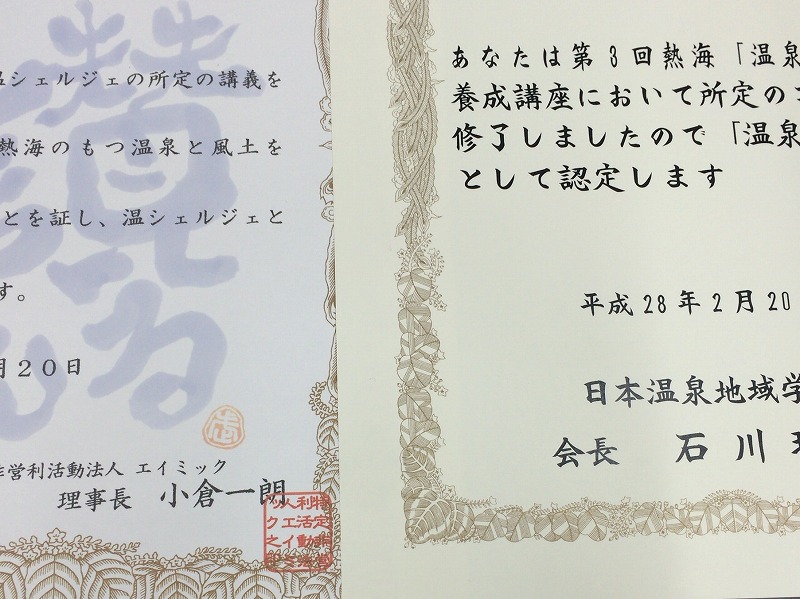 温シェルジェの所定の講義を
熱海のもつ温泉と風土を
とを証し、温シェルジェと
す。
月20日
営利活動法人 エイミック
理事長 小倉一朗
あなたは第3回熱海「温泉
養成講座において所定の
修了しましたので「温泉
として認定します
平成28年2月20
日本温泉地域学
会長 石川
特定非営
利活動法
人エイミ
ック